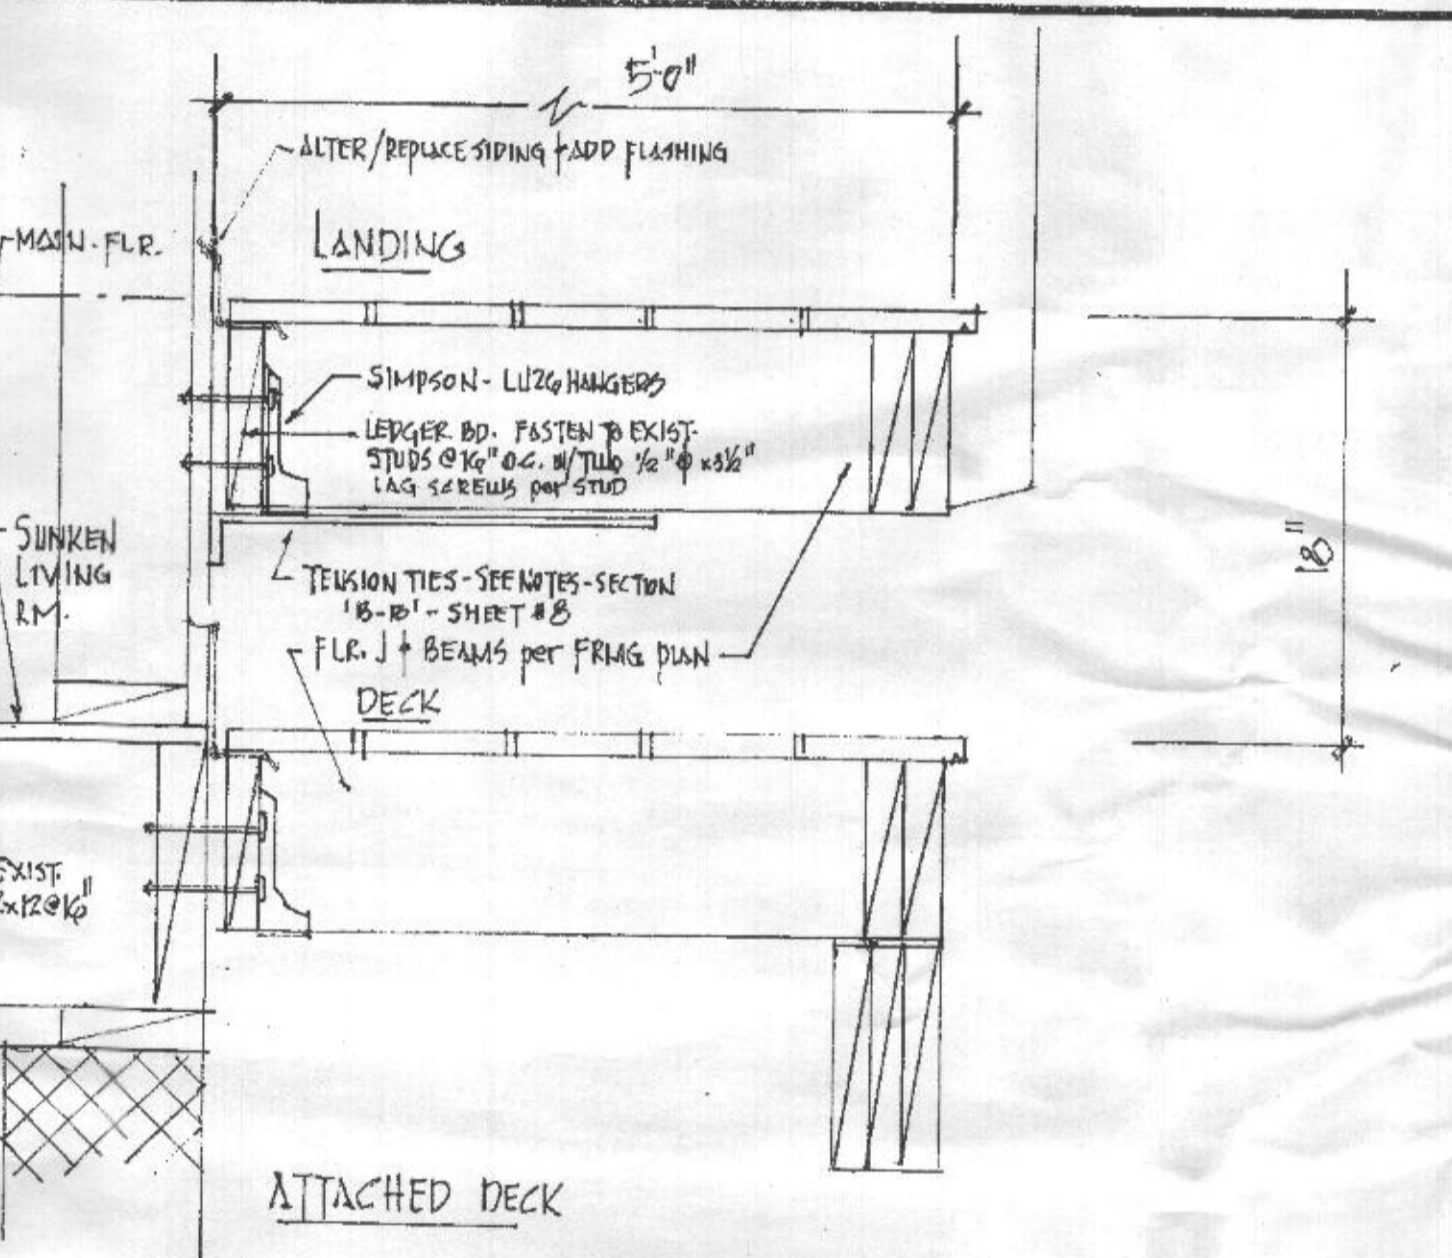 5'-0"
ALTER/REPLACE SIDING + ADD FLASHING
MAIN. FLR.
LANDING
SIMPSON - LU26 HANGERS
LEDGER BD. FASTEN TO EXIST.
STUDS @ 16" O.C. W/ TWO 1/2" Φ x 3½"
LAG SCREWS per STUD
SUNKEN
LIVING
RM.
18"
TENSION TIES - SEE NOTES - SECTION
'B-B' - SHEET #8
FLR. J + BEAMS per FRMG PLAN
DECK
EXIST.
2x12@16"
ATTACHED DECK